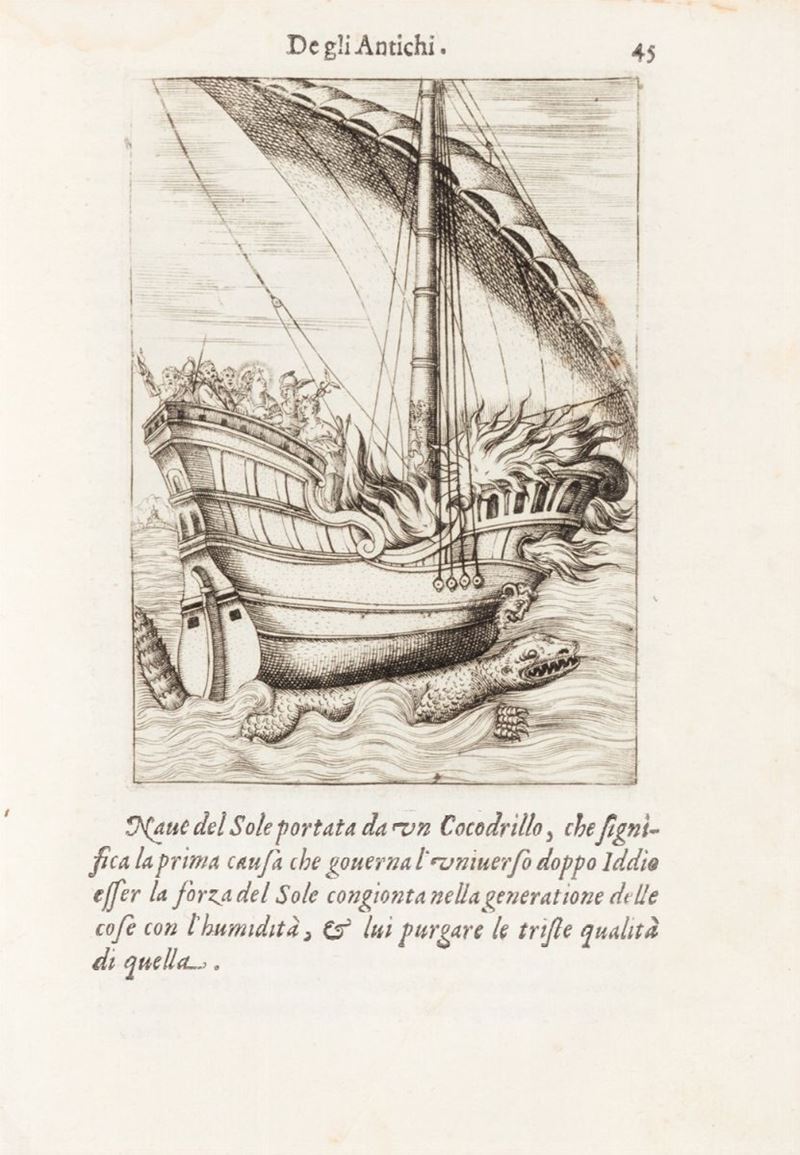 De gli Antichi.
45
Naue del Sole portata da vn Cocodrillo, che ſigni-
fica la prima cauſa che gouerna l'vniuerſo doppo Iddio
eſſer la forza del Sole congionta nella generatione delle
coſe con l'humidità, & lui purgare le triſte qualità
di quella.